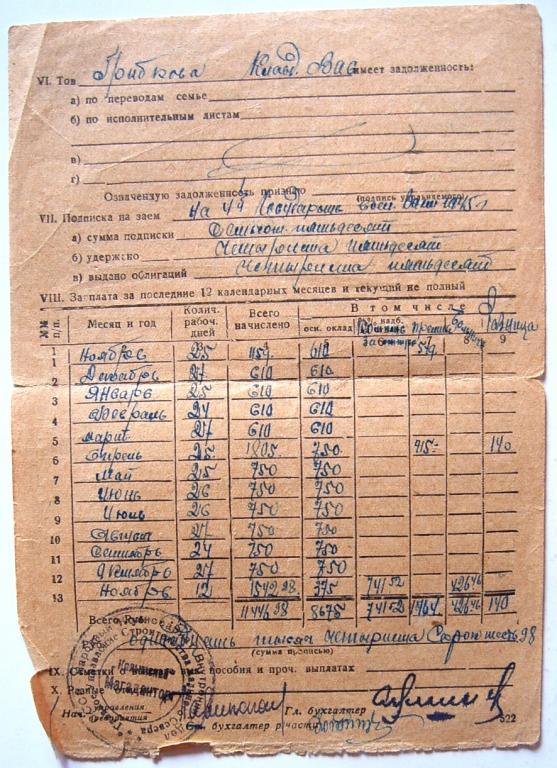 VI. Тов. Грибкова Клавд. Вас имеет задолженность:
а) по переводам семье
б) по исполнительным листам
в)
г)
Означенную задолженность признаю
(подпись увольняемого)
VII. Подписка на заем на 4й 1945 г
а) сумма подписки пятьдесят
б) удержано Четыреста пятьдесят
в) выдано облигаций Четыреста пятьдесят
VIII. Зарплата за последние 12 календарных месяцев и текущий не полный
№№ п.п. Месяц и год Колич. рабоч. дней Всего начислено В том числе
осн. оклад надб. премия разница
1 7 8 9
1 Ноябрь 25 1159 610 549
2 Декабрь 27 610 610
3 Январь 25 610 610
4 Февраль 24 610 610
5 март 27 610 610
6 Апрель 25 1805 750 915 140
7 Май 25 750 750
8 Июнь 26 750 750
9 Июль 26 750 750
10 Август 27 750 750
11 Сентябрь 24 750 750
12 Октябрь 27 750 750
13 Ноябрь 12 1542 98 375 741 52 426 46
Всего 11446 98 8675 741 52 1464 426 46 140
одиннадцать тысяч четыреста Сорок шесть 98
(сумма прописью)
IX. Отметки о пособия и проч. выплатах
X. Разные
Нач. управления предприятия
Гл. бухгалтер
бухгалтер расчетн
Магаданторг
522